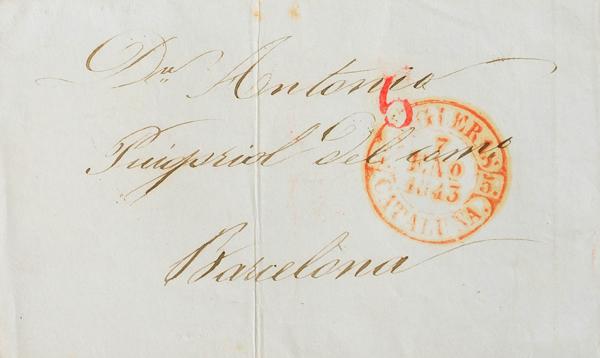 Dn Antonio
6
Puigoriol del comº
Barcelona
FIGUERAS
7
ENO
1843
5.
CATALUÑA.